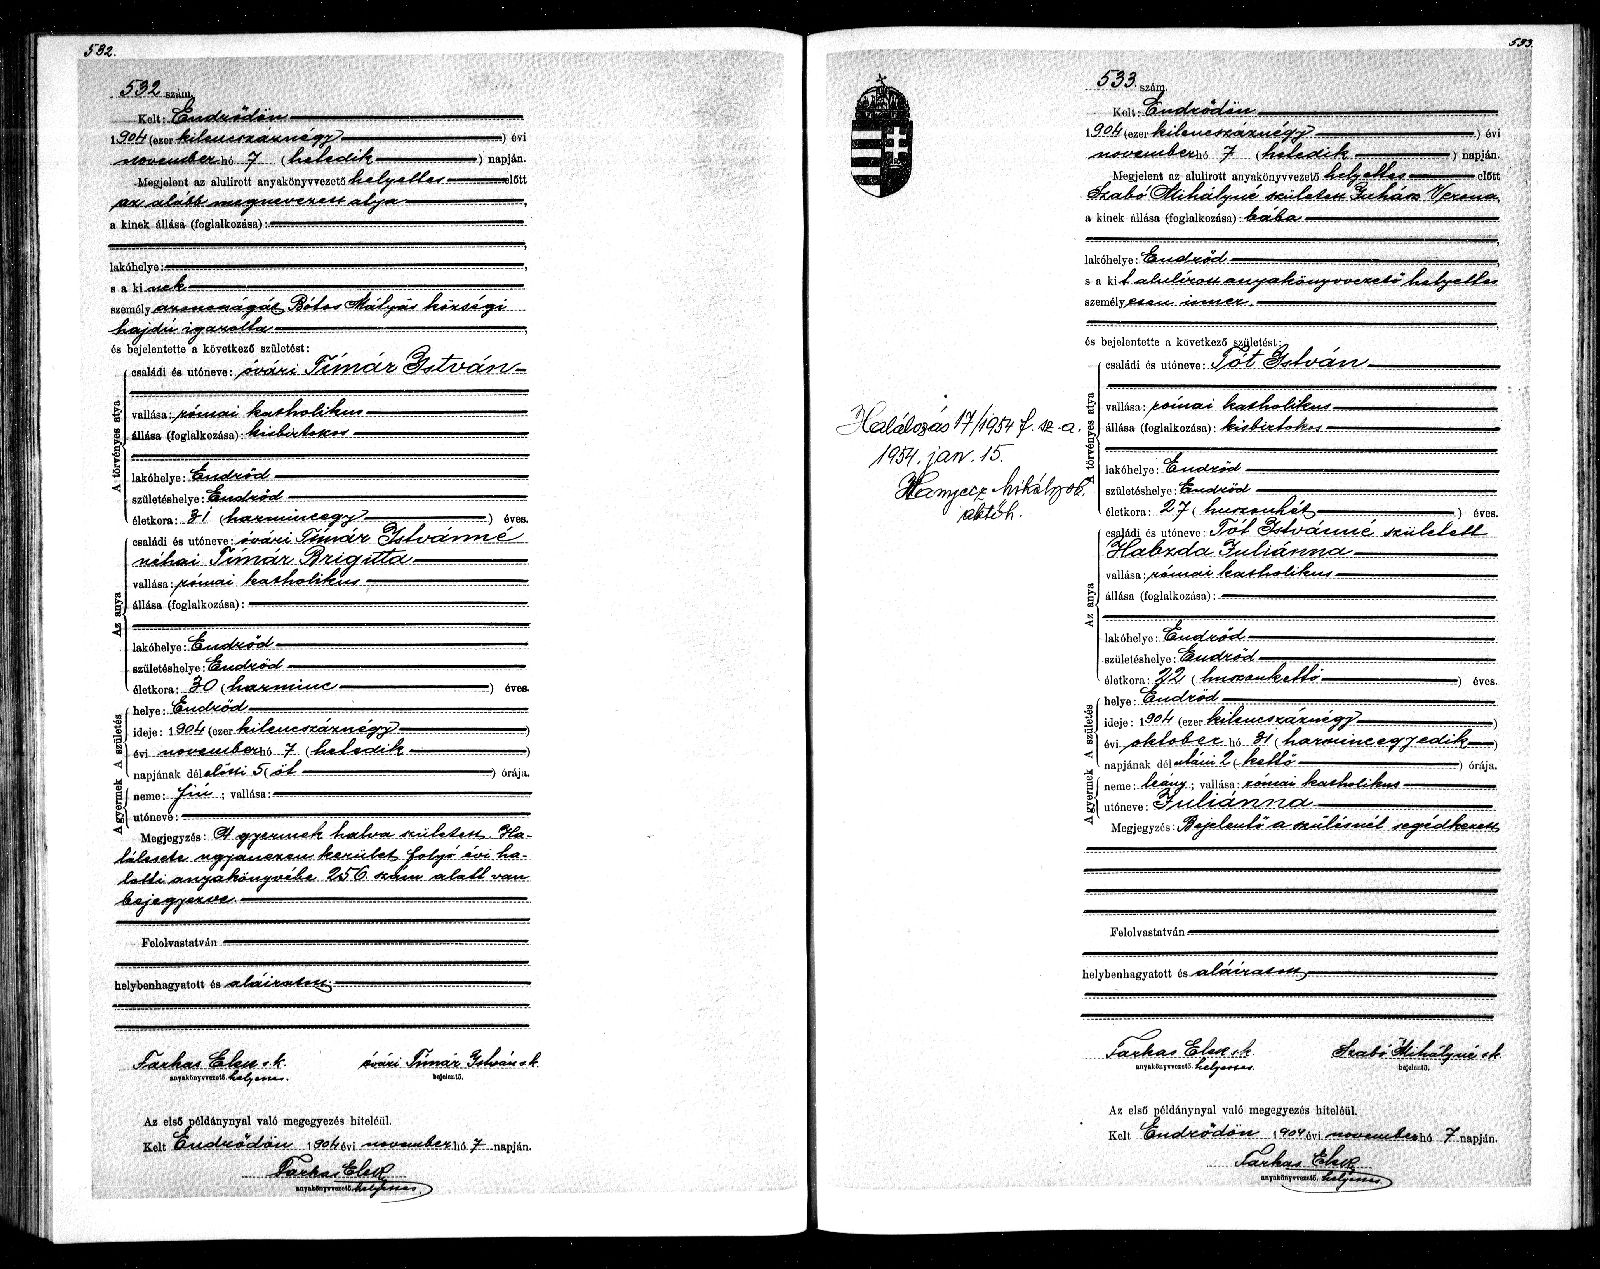 532.
532 szám.
Kelt: Endrődön
1904 (ezer kilencszáznégy) évi
november hó 7 (hetedik) napján.
Megjelent az alulirott anyakönyvvezető helyettes előtt
az alább megnevezett atya,
a kinek állása (foglalkozása):
lakóhelye:
s a kinek
személy azonosságát Bótos Mátyás községi
hajdú igazolta
és bejelentette a következő születést:
A törvényes atya
családi és utóneve: óvári Tímár István
vallása: római katholikus
állása (foglalkozása): kisbirtokos
lakóhelye: Endrőd
születéshelye: Endrőd
életkora: 31 (harmincegy) éves.
Az anya
családi és utóneve: óvári Tímár Istvánné
néhai Tímár Brigitta
vallása: római katholikus
állása (foglalkozása):
lakóhelye: Endrőd
születéshelye: Endrőd
életkora: 30 (harminc) éves.
A születés
helye: Endrőd
ideje: 1904 (ezer kilencszáznégy)
évi november hó 7 (hetedik)
napjának dél előtti 5 (öt) órája.
A gyermek
neme: fiú; vallása:
utóneve:
Megjegyzés: A gyermek halva született. Ha-
lálesete ugyanezen kerület folyó évi ha-
lotti anyakönyvébe 256 szám alatt van
bejegyezve.
Felolvastatván
helybenhagyatott és aláiratott.
Farkas Elek s.k. óvári Tímár István s.k.
anyakönyvvezető helyettes. bejelentő.
Az első példánynyal való megegyezés hiteléül.
Kelt Endrődön 1904 évi november hó 7 napján.
Farkas Elek
anyakönyvvezető helyettes
533.
533 szám.
Kelt: Endrődön
1904 (ezer kilencszáznégy) évi
november hó 7 (hetedik) napján.
Megjelent az alulirott anyakönyvvezető helyettes előtt
Szabó Mihályné született Juhász Verona,
a kinek állása (foglalkozása): bába
lakóhelye: Endrőd
s a kit alulírott anyakönyvvezető helyettes
személyesen ismer.
és bejelentette a következő születést:
A törvényes atya
családi és utóneve: Tót István
vallása: római katholikus
állása (foglalkozása): kisbirtokos
lakóhelye: Endrőd
születéshelye: Endrőd
életkora: 27 (huszonhét) éves.
Az anya
családi és utóneve: Tót Istvánné született
Habzda Juliánna
vallása: római katholikus
állása (foglalkozása):
lakóhelye: Endrőd
születéshelye: Endrőd
életkora: 22 (huszonkettő) éves.
A születés
helye: Endrőd
ideje: 1904 (ezer kilencszáznégy)
évi október hó 31 (harmincegyedik)
napjának dél utáni 2 (kettő) órája.
A gyermek
neme: leány; vallása: római katholikus
utóneve: Juliánna
Megjegyzés: Bejelentő a szülésnél segédkezett
Felolvastatván
helybenhagyatott és aláiratott
Farkas Elek s.k. Szabó Mihályné s.k.
anyakönyvvezető helyettes. bejelentő.
Az első példánynyal való megegyezés hiteléül.
Kelt Endrődön 1904 évi november hó 7 napján.
Farkas Elek
anyakönyvvezető helyettes.
Halálozás 17/1954 f. sz. a.
1954. jan. 15.
Hanyecz Mihály